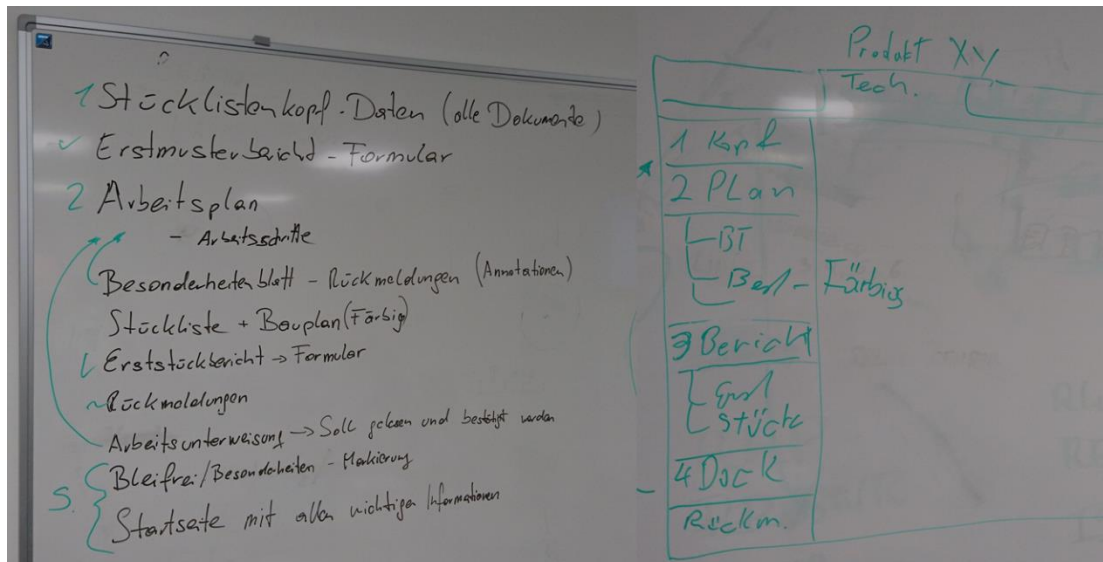 1 Stücklistenkopf - Daten (alle Dokumente)
Erstmusterbericht - Formular
2 Arbeitsplan
- Arbeitsschritte
Besonderheitenblatt - Rückmeldungen (Annotationen)
Stückliste + Bauplan (Färbig)
Erststückbericht → Formular
~ Rückmeldungen
Arbeitsunterweisung → Soll gelesen und bestätigt werden
Bleifrei/Besonderheiten - Markierung
S.
Startseite mit allen wichtigen Informationen
Produkt XY
Tech.
1 Kopf
2 Plan
BT
Best - Färbig
3 Bericht
Erst
Stück
4 Dock
Rückm.